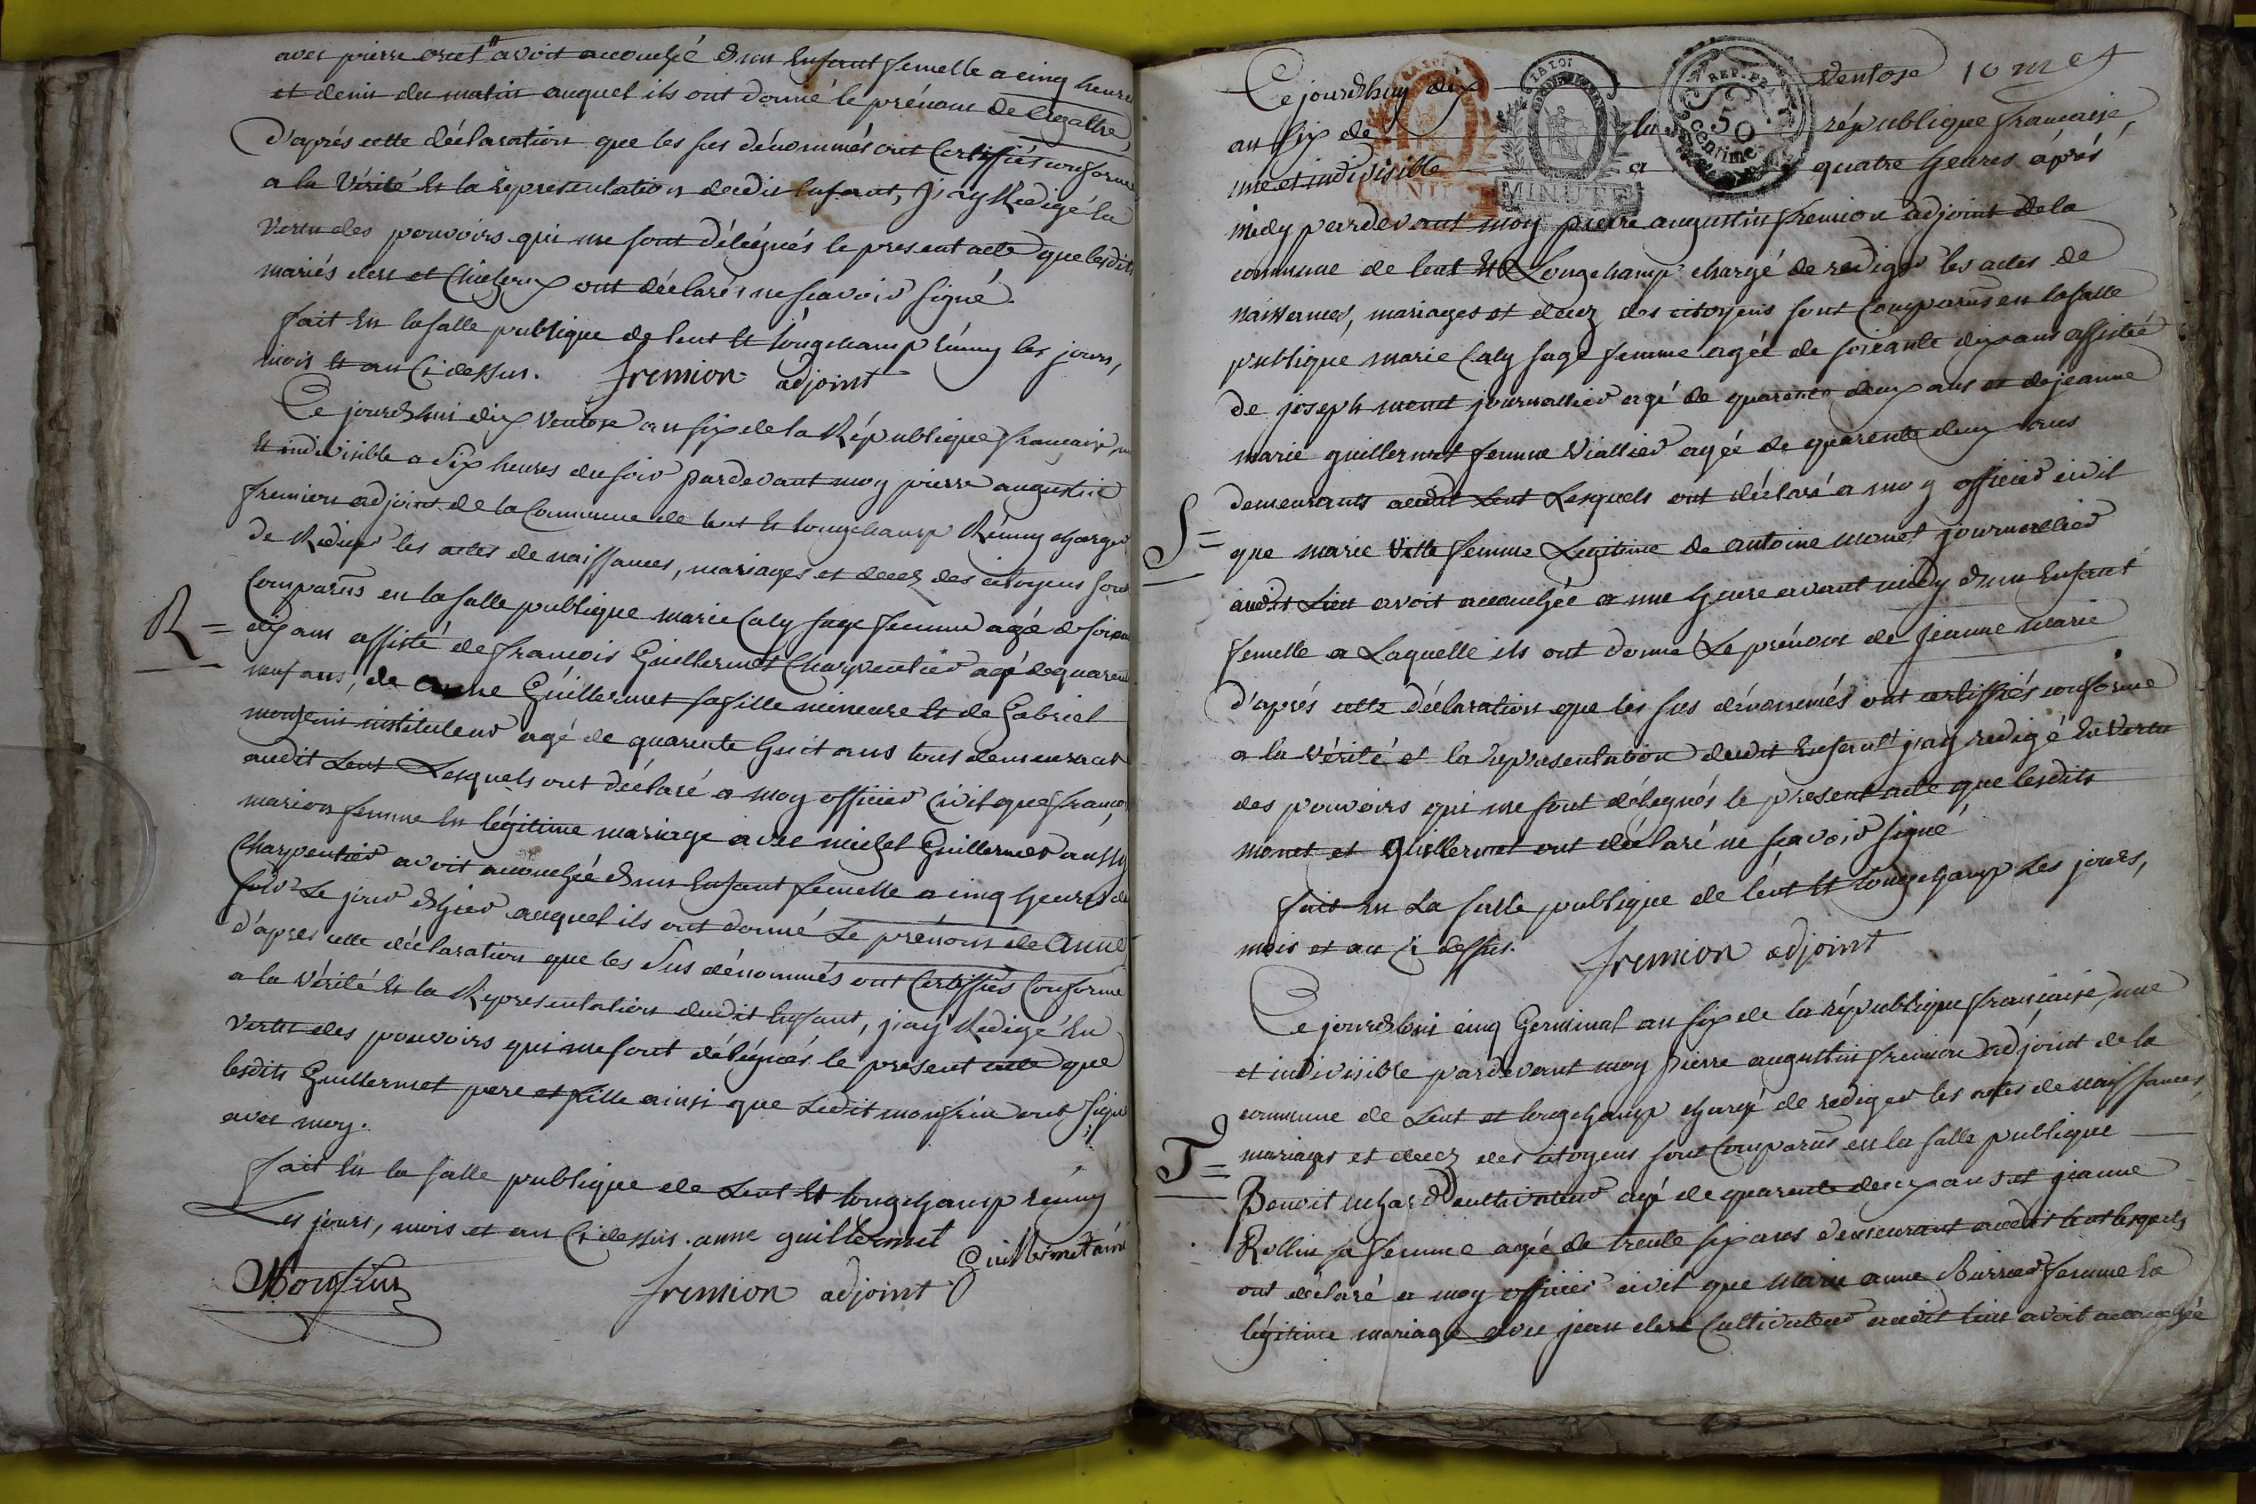 avec pierre avoit accouché d'un Enfant femelle a cinq heure
et demi du matin auquel ils ont donné le prénom de agathe
D'aprés cette déclaration que les sus dénommés ont Certiffiés conforme
a la Vérité Et la représentation dudit Enfant, j'ay Rédigé En
Vertu des pouvoirs qui me sont délégués le present acte que lesdits
mariés et ont déclarés ne sçavoir signé.
fait En la salle publique de lent Et Longchamp Réuny les jours,
mois Et an Ci dessus. fremion adjoint
Ce jourd'hui dix Ventose an six de la République française, une
Et indivisible a Six heures du soir pardevant moy pierre augustin
fremion adjoint de la Commune de lent Et longchamp Réuny chargé
de Rediger les actes de naissances, mariages et decez des citoyens sont
R =
Comparûs en la salle publique marie Caly sage femme agé de soixante
dix ans assisté de françois Guillermet Charpentier agé de quarente
neuf ans, de anne Guillermet sa fille mineure Et de Gabriel
monfrin instituteur agé de quarente huit ans tous demeurant
audit Lent Lesquels ont déclaré a moy officier Civil que françoise
marion femme En légitime mariage avec michel Guillermet aussy
Charpentier avoit accouchée d'un Enfant femelle a cinq heures du
soir Le jour d'hier auquel ils ont donné Le prénom de Anne
d'aprés cette déclaration que les Sus dénommés ont Certiffiés Conforme
a la Vérité Et la Representation dudit Enfant, j'ay Rédigé En
Vertu des pouvoirs qui me sont délégués le present acte que
lesdits Guillermet pere et fille ainsi que Ledit monfrin ont signé
avec moy.
fait En la salle publique de Lent Et longchamp réuny
Les jours, mois et an Ci dessus. anne guillermet
Guillermet ainé
Monfrin
fremion adjoint
Ce jourd'huy dix Ventose 10 m
an six de la république française,
une et indivisible a quatre heures aprés
midy pardevant moy pierre augustin fremion adjoint de la
commune de lent Et Longchamp chargé de rediger les actes de
naissances, mariages et decez des citoyens sont Comparûs en la salle
publique marie Caly sage femme agée de soixante dix ans assistée
de joseph monet journallier agé de quarente deux ans et de jeanne
marie guillermet femme Viallier agée de quarente deux ans
demeurants audit Lent Lesquels ont déclaré a moy officier civil
S =
que marie Ville femme Legitime de antoine monet journallier
audit Lieu avoit accouchée a une heure avant midy d'un Enfant
femelle a Laquelle ils ont donné Le prénom de jeanne marie
d'aprés cette déclaration que les sus dénommés ont certiffiés conforme
a la Vérité et la représentation dudit Enfant j'ay redigé En Vertu
des pouvoirs qui me sont délégués le present acte que lesdits
monet et guillermet ont déclaré ne sçavoir signé
fait En La salle publique de lent Et Longchamp Les jours,
mois et an Ci dessus. fremion adjoint
Ce jourd'hui cinq Germinal an six de la république française, une
et indivisible pardevant moy pierre augustin fremion adjoint de la
commune de Lent et longchamp chargé de rediger les actes de naissances,
T =
mariages et decez des citoyens sont Comparûs en la salle publique
Benoit cultivateur agé de quarente deux ans et jeanne
Rollin sa femme agée de trente six ans demeurant audit lent lesquels
ont déclaré a moy officier civil que Marie anne femme En
légitime mariage avec jean Cultivateur audit lieu avoit accouchée
LA LOI
MINUTE
REP. FRA.
50
centimes
MINUTE